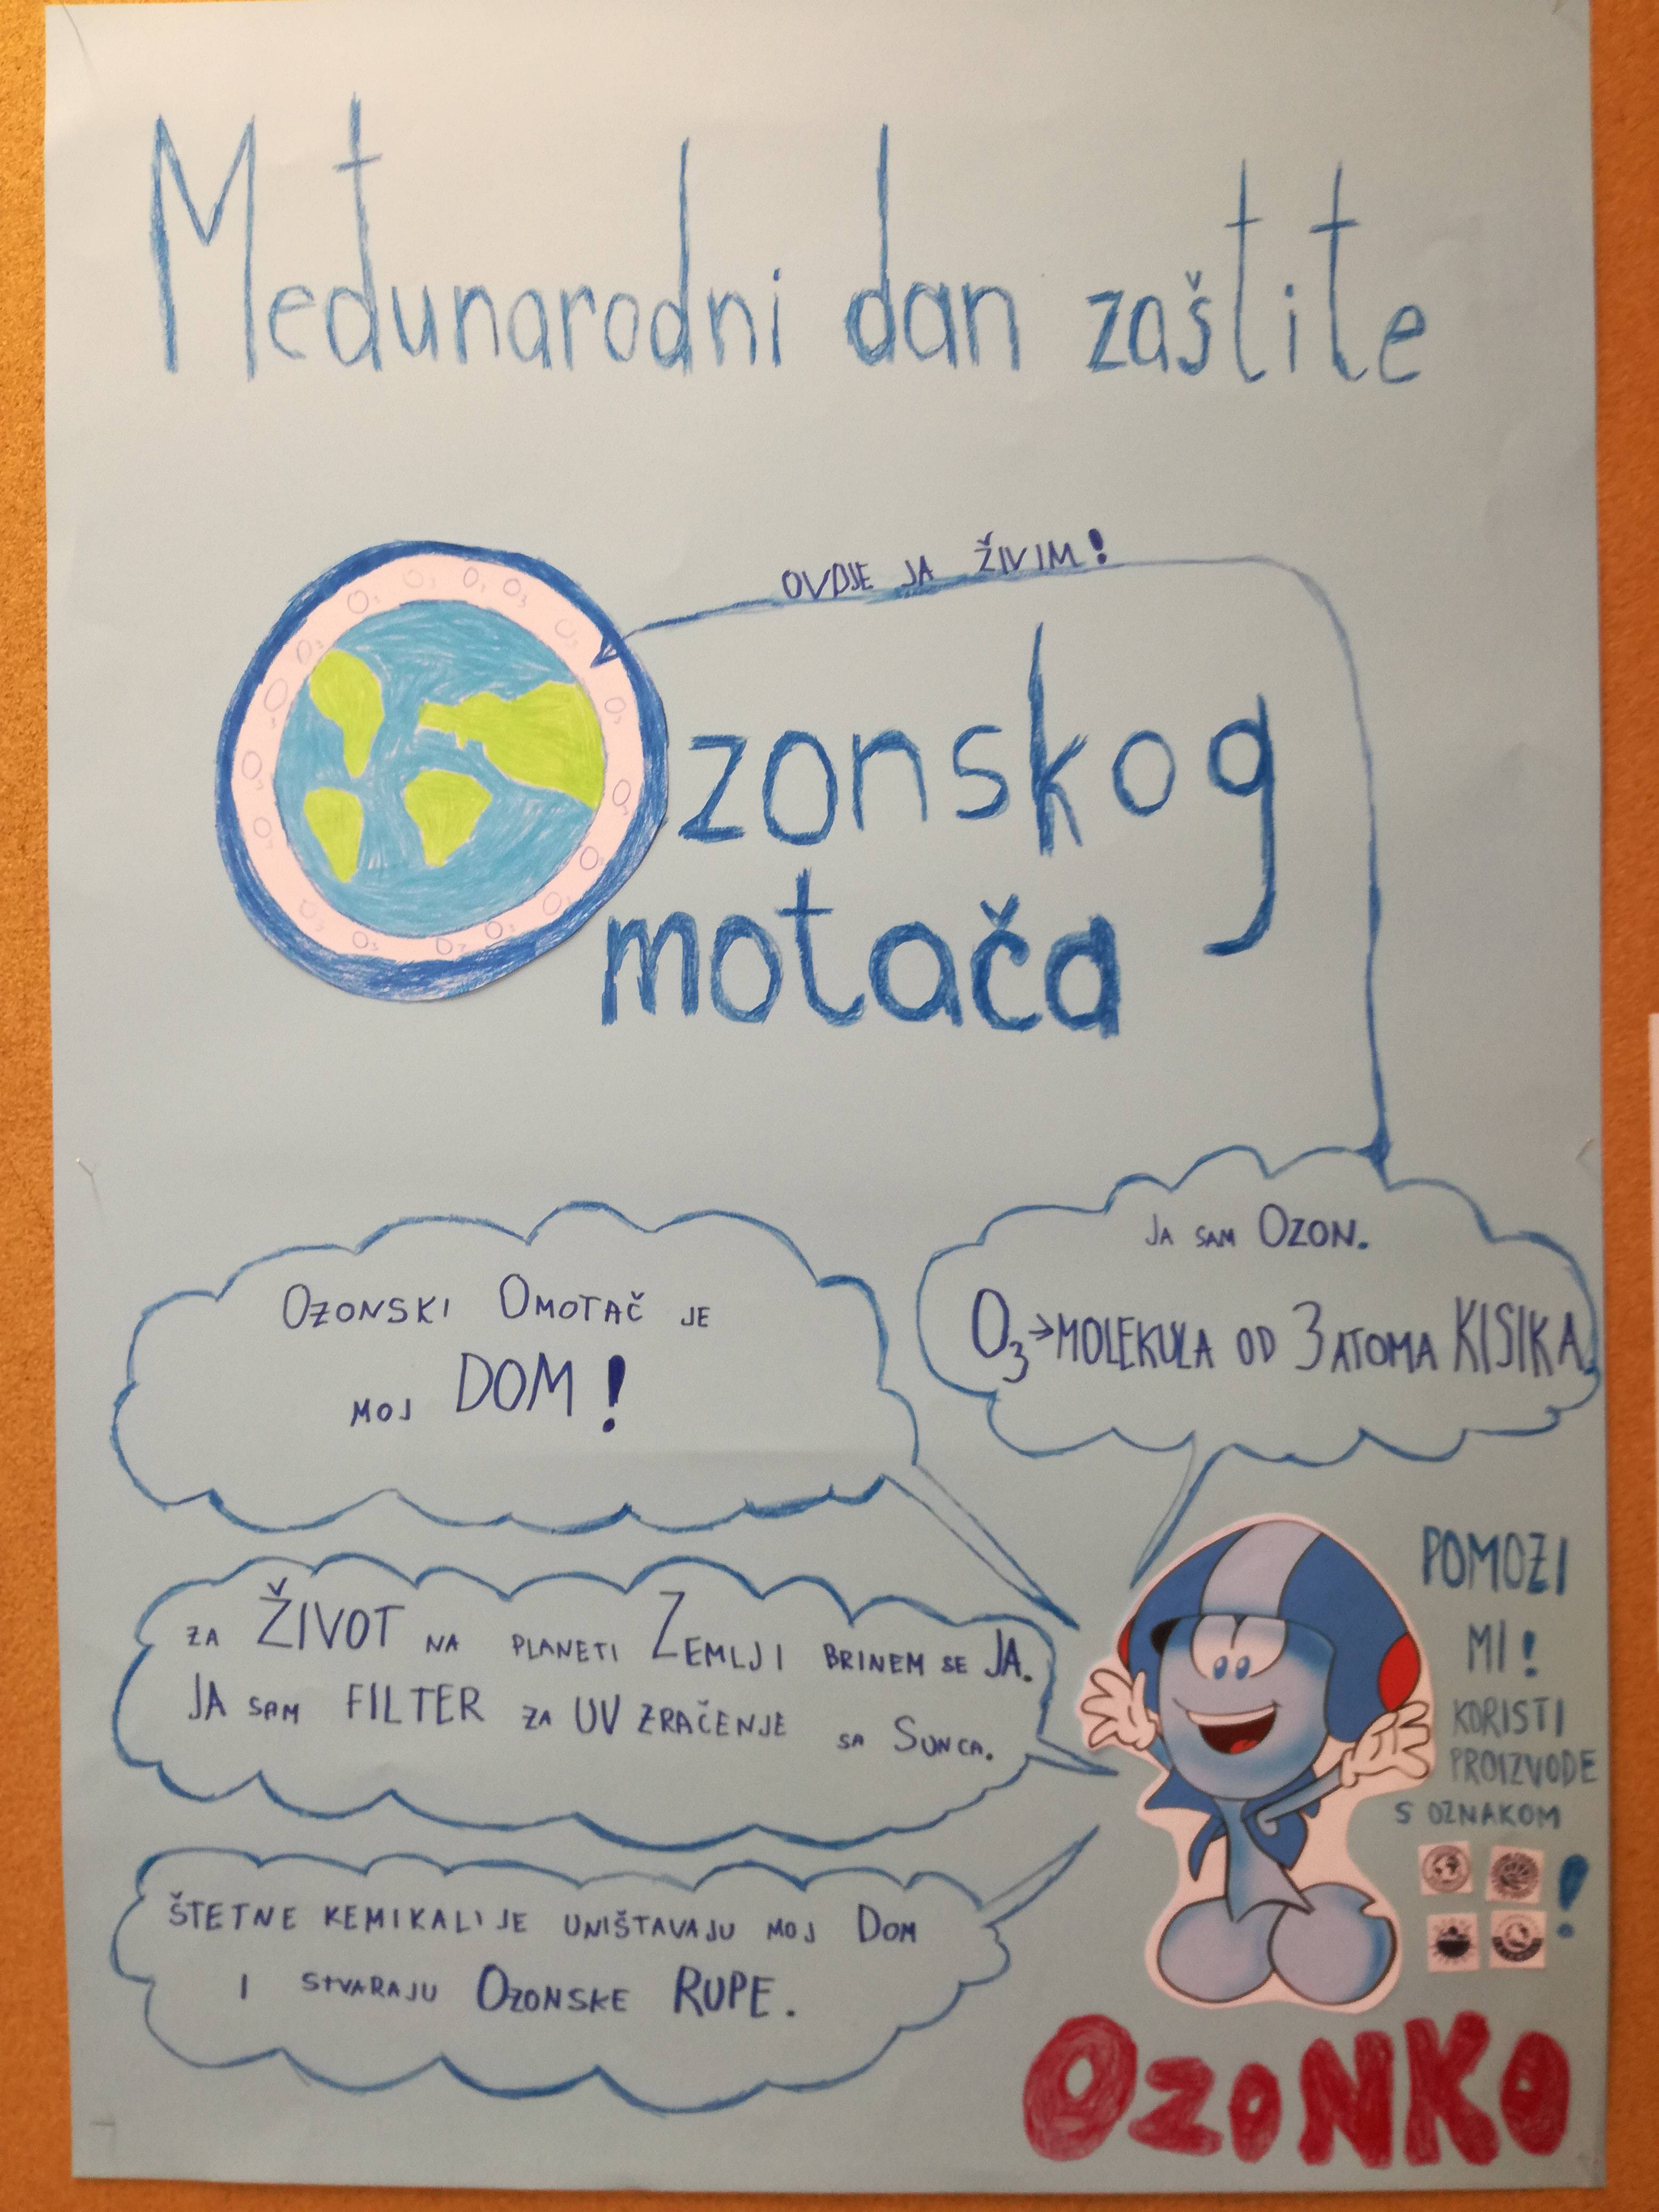 Međunarodni dan zaštite
OVDJE JA ŽIVIM!
Ozonskog
Omotača
JA SAM OZON.
O₃→MOLEKULA OD 3 ATOMA KISIKA
OZONSKI OMOTAČ JE
MOJ DOM!
ZA ŽIVOT NA PLANETI ZEMLJI BRINEM SE JA.
JA SAM FILTER ZA UV ZRAČENJE SA SUNCA.
ŠTETNE KEMIKALIJE UNIŠTAVAJU MOJ DOM
I STVARAJU OZONSKE RUPE.
POMOZI
MI!
KORISTI
PROIZVODE
S OZNAKOM
!
OZONKO